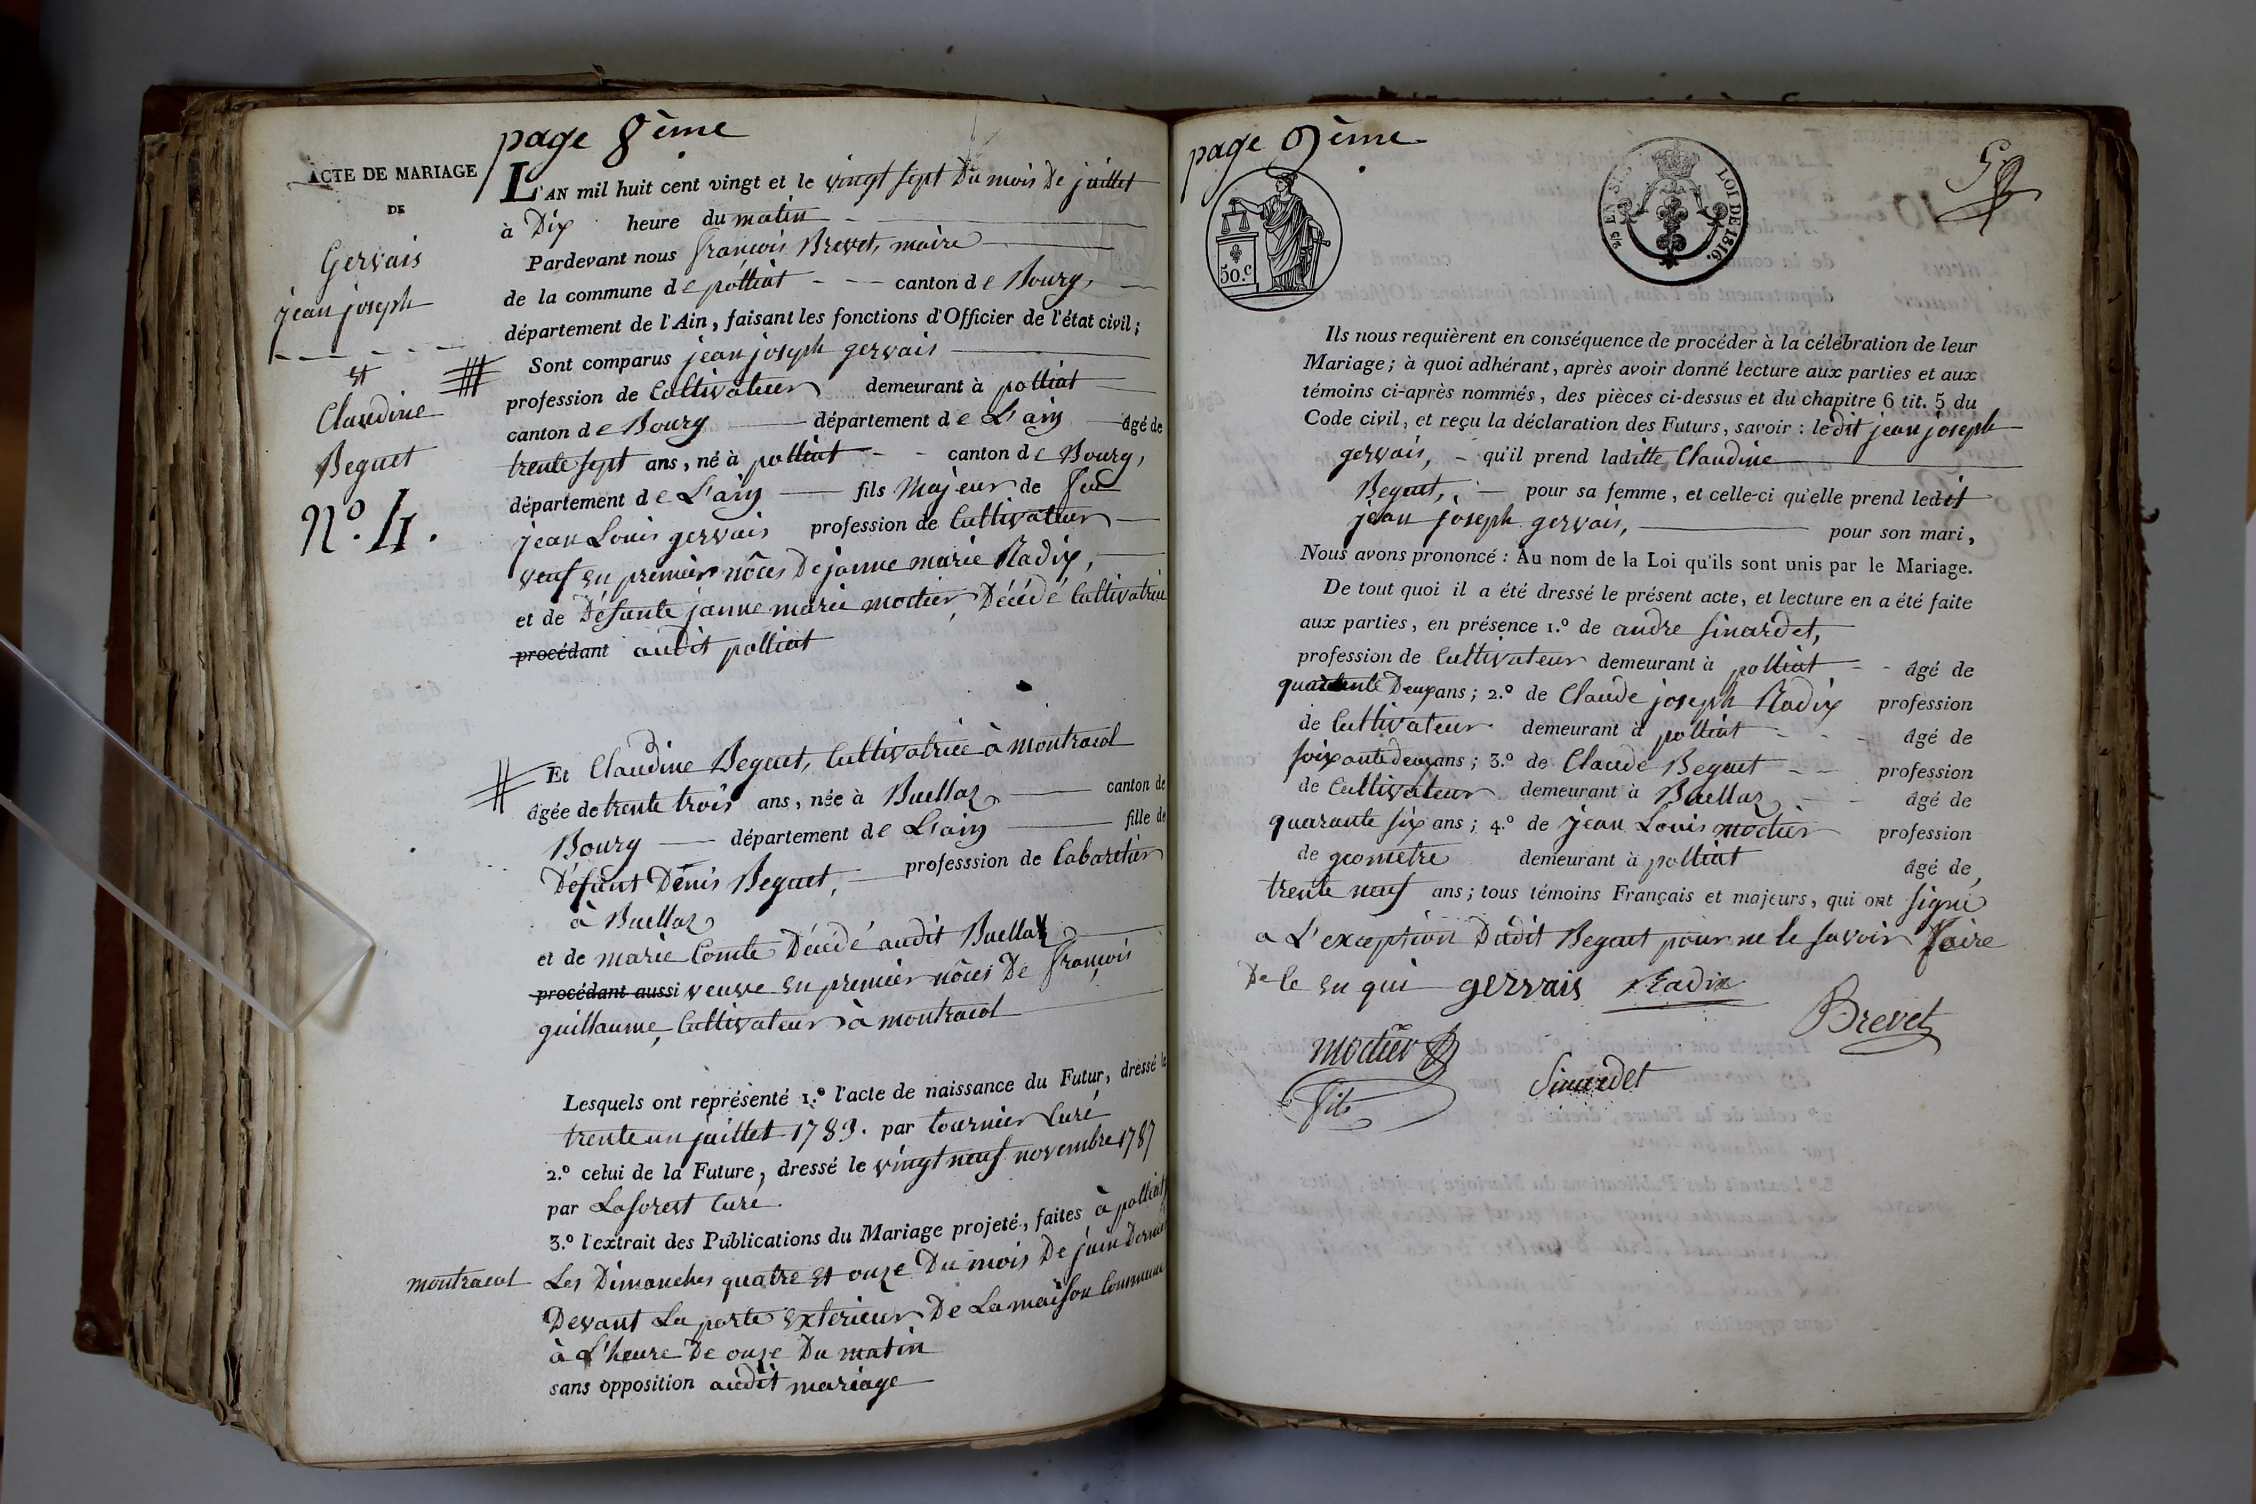 page 8ème
ACTE DE MARIAGE
DE
Gervais
jean joseph
et
Claudine
Beguet
N.º 4.
L'AN mil huit cent vingt et le vingt sept du mois de juillet
à Dix heure du matin
Pardevant nous françois Brevet, maire
de la commune de polliat canton de Bourg,
département de l'Ain, faisant les fonctions d'Officier de l'état civil;
Sont comparus jean joseph gervais
profession de Cultivateur demeurant à polliat
canton de Bourg département de L'ain âgé de
trente sept ans, né à polliat canton de Bourg,
département de L'ain fils Majeur de feu
jean Louis gervais profession de Cultivateur
veuf en premier nôces De janne marie Radix,
et de Défunte janne marie mochier, Décédé Cultivatrice
procédant audit polliat
Et Claudine Beguet, Cultivatrice à montracol
âgée de trente trois ans, née à Buellaz canton de
Bourg département de L'ain fille de
Défunt Denis Beguet, professsion de Cabaretier
à Buellaz
et de marie Comte Décédé audit Buellaz
procédant aussi veuve en premier nôces De françois
guillaume, Cultivateur à montracol
Lesquels ont représenté 1.º l'acte de naissance du Futur, dressé le
trente un juillet 1783. par tournier Curé
2.º celui de la Future, dressé le vingt neuf novembre 1787
par Laforest Curé.
3.º l'extrait des Publications du Mariage projeté, faites à polliat
montracol Les Dimanches quatre et onze Du mois De juin Dernier
Devant La porte exterieur De La maison Commune
à L'heure De onze Du matin
sans opposition audit mariage
page 9ème
50.c
LOI DE 1816.
Ils nous requièrent en conséquence de procéder à la célébration de leur
Mariage; à quoi adhérant, après avoir donné lecture aux parties et aux
témoins ci-après nommés, des pièces ci-dessus et du chapitre 6 tit. 5 du
Code civil, et reçu la déclaration des Futurs, savoir: ledit jean joseph
gervais, qu'il prend ladille, Claudine
Beguet, pour sa femme, et celle-ci qu'elle prend ledit
jean joseph gervais, pour son mari,
Nous avons prononcé: Au nom de la Loi qu'ils sont unis par le Mariage.
De tout quoi il a été dressé le présent acte, et lecture en a été faite
aux parties, en présence 1.º de andre sinardet,
profession de Cultivateur demeurant à polliat âgé de
quarante Deux ans; 2.º de Claude joseph Radix profession
de Cultivateur demeurant à polliat âgé de
soixante deux ans; 3.º de Claude Beguet profession
de Cultivateur demeurant à Buellaz âgé de
quarante six ans; 4.º de jean Louis mochier profession
de geometre demeurant à polliat âgé de
trente neuf ans; tous témoins Français et majeurs, qui ont signé
a L'exception Dudit Beguet pour ne le savoir faire
De ce en qui gervais Radix
Brevet
mochier
fils
Sinardet